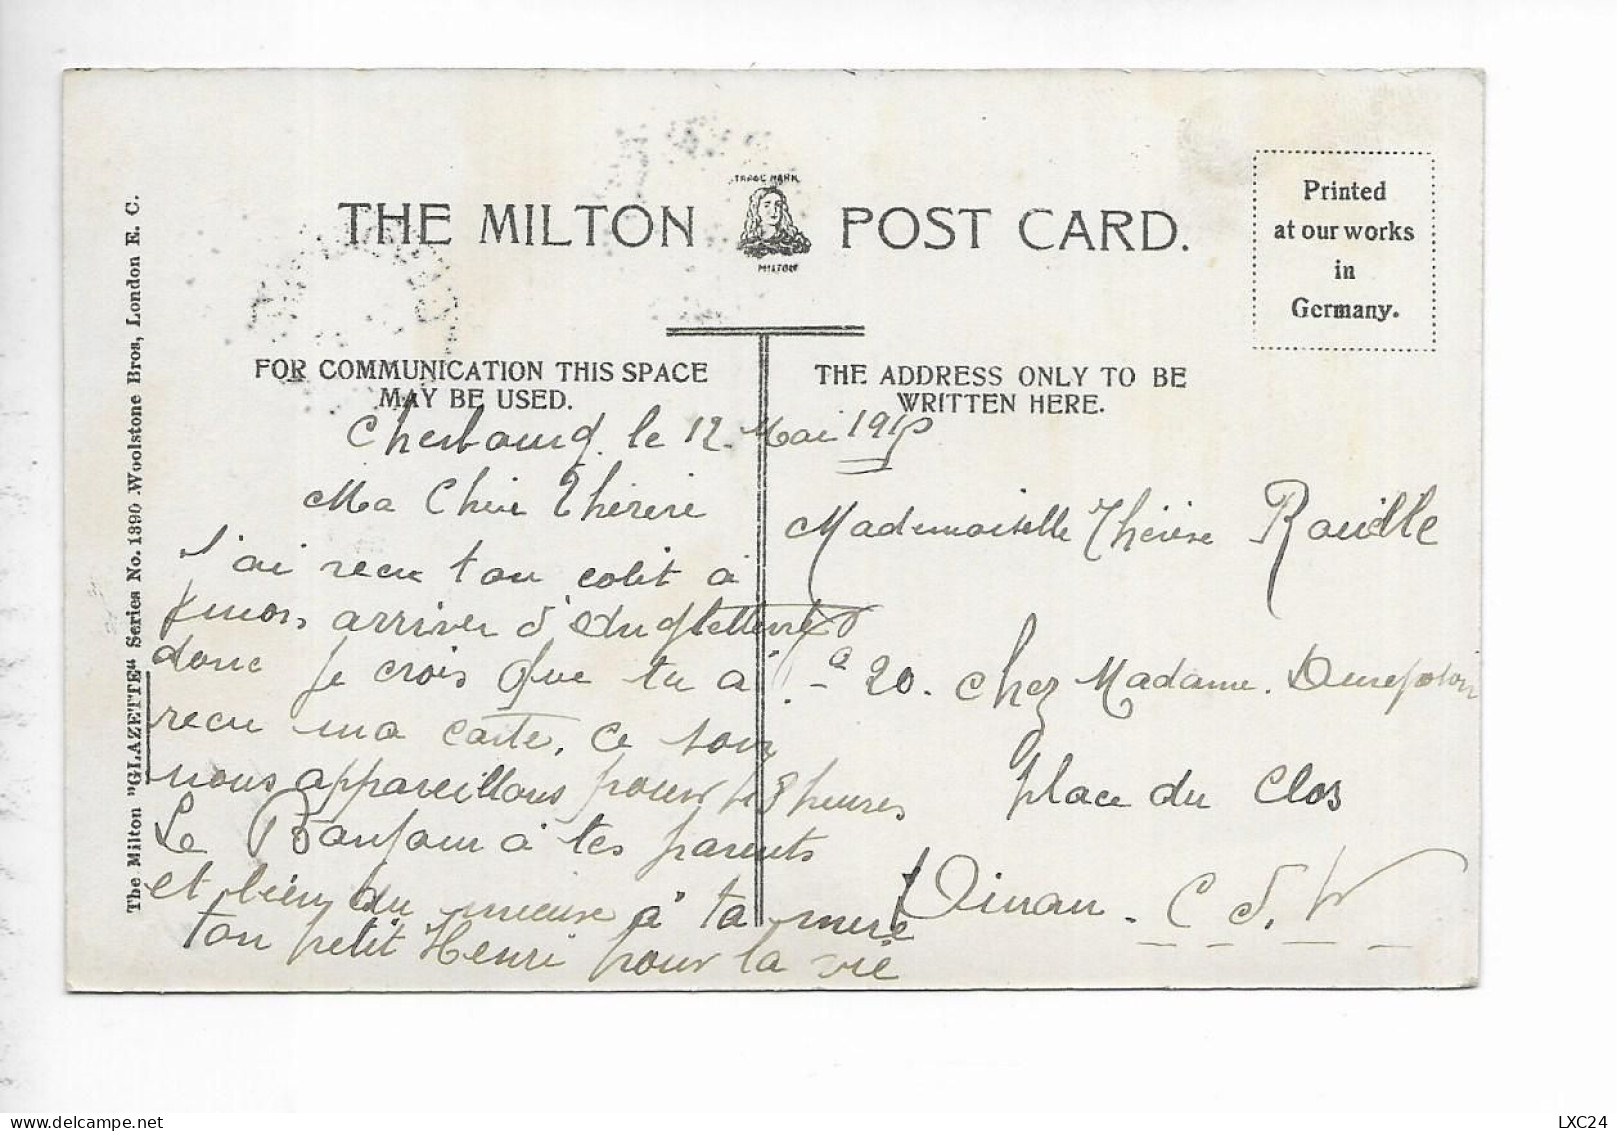 THE MILTON POST CARD.
TRADE MARK
MILTON
Printed
at our works
in
Germany.
The Milton "GLAZETTE" Series No. 1390 Woolstone Bros, London E. C.
FOR COMMUNICATION THIS SPACE
MAY BE USED.
THE ADDRESS ONLY TO BE
WRITTEN HERE.
Cherbourg. le 12 Mai 191
Ma Chère Thérèse
J'ai recu ton colit à
mon arriver d'Angletterre
donc je crois que tu a
recu ma carte. Ce soir
nous appareillons pour 48 heures
Le Bonjour à tes parents
et bien du mieuse à ta mere
ton petit Henri pour la vie
Mademoiselle Thérèse Rouille
20. chez Madame
place du Clos
Dinan. C d. N
LXC24